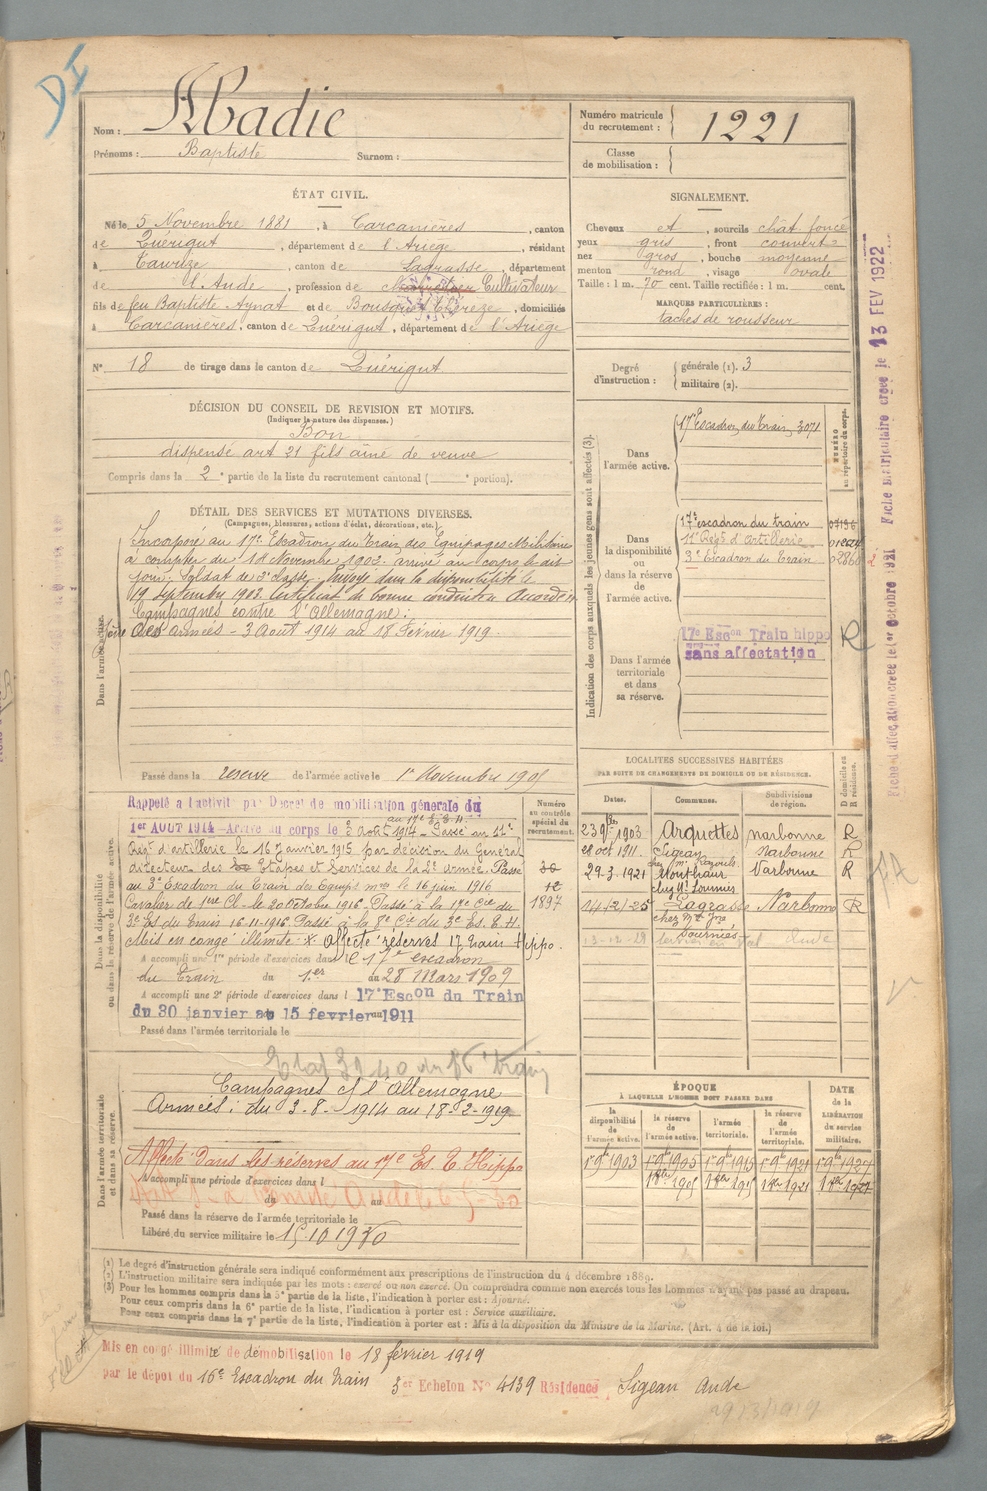 DI
Nom : Abadie
Prénoms : Baptiste Surnom :
Numéro matricule du recrutement : 1221
Classe de mobilisation :
ÉTAT CIVIL.
Né le 5 Novembre 1881, à Carcanières, canton
de Quérigut, département de l'Ariège, résidant
à Taurize, canton de Lagrasse, département
de l'Aude, profession de Cultivateur
fils de feu Baptiste Aynat et de Bousquet Thérèze, domiciliés
à Carcanières, canton de Quérigut, département de l'Ariège
N° 18 de tirage dans le canton de Quérigut
SIGNALEMENT.
Cheveux et, sourcils chât foncé
yeux gris, front couvert
nez gros, bouche moyenne
menton rond, visage ovale
Taille : 1 m. 70 cent. Taille rectifiée : 1 m. cent.
MARQUES PARTICULIÈRES :
taches de rousseur
Degré d'instruction : générale (1). 3
militaire (2).
DÉCISION DU CONSEIL DE REVISION ET MOTIFS.
(Indiquer la nature des dispenses.)
Bon
dispensé art 21 fils aîné de veuve
Compris dans la 2e partie de la liste du recrutement cantonal ( portion).
DÉTAIL DES SERVICES ET MUTATIONS DIVERSES.
(Campagnes, blessures, actions d'éclat, décorations, etc.)
Dans l'armée active.
Incorporé au 17e Escadron du Train des Equipages Militaires
à compter du 14 Novembre 1902 arrivé au corps le dit
jour. Soldat de 2e classe. Envoyé dans la disponibilité le
19 Septembre 1903. Certificat de bonne conduite Accordé
Campagnes contre l'Allemagne :
Armées - 3 Août 1914 au 18 Février 1919
Passé dans la réserve de l'armée active le 1er Novembre 1905
Indication des corps auxquels les jeunes gens sont affectés (3).
NUMÉRO au répertoire du corps.
Dans l'armée active.
17e Escadron du Train 3071
Dans la disponibilité ou dans la réserve de l'armée active.
17e escadron du train
11e Régt d'Artillerie
3e Escadron du Train
Dans l'armée territoriale et dans sa réserve.
17e Escon Train hippo R
sans affectation
Fiche matriculaire créée le 13 FEV 1922
Fiche d'affectation créée le 1er Octobre 1921
LOCALITÉS SUCCESSIVES HABITÉES
PAR SUITE DE CHANGEMENTS DE DOMICILE OU DE RÉSIDENCE.
Dates. Communes. Subdivisions de région. D domicile ou R résidence.
23 9bre 1903 Arquettes Narbonne R
28 oct 1911. Sigean Narbonne R
29-3-1921 Monthaur Narbonne R
14-12-25 Lagrasse Narbonne R
Dans la disponibilité ou dans la réserve de l'armée active.
Numéro au contrôle spécial du recrutement.
Rappelé à l'activité par Décret de mobilisation générale du
1er AOUT 1914 - Arrivé au corps le 3 Août 1914 - Passé au 11e
Régt d'artillerie le 16 Janvier 1915 par décision du Général
directeur des Etapes et Services de la 2e Armée. Passé
au 3e Escadron du Train des Equips mres le 16 juin 1916
Cavalier de 1ère Cl. le 20 Octobre 1916. Passé à la 17e Cie du
3e Es du Train 16-11-1916. Passé à la 8e Cie du 3e Es. E. H.
Mis en congé illimité. Affecté réserves 17 Train Hippo.
1897
A accompli une 1re période d'exercices dans le 17e escadron
du Train du 1er au 28 Mars 1909
A accompli une 2e période d'exercices dans l 17e Escon du Train
du 30 janvier au 15 fevrier 1911
Passé dans l'armée territoriale le
Dans l'armée territoriale et dans sa réserve.
Campagnes c/ l'Allemagne
Armées : du 3-8-1914 au 18-2-1919
Affecté dans les réserves au 17e Es. T. Hippo
A accompli une période d'exercices dans l
du au
Passé dans la réserve de l'armée territoriale le
Libéré du service militaire le 15.10.1930
ÉPOQUE
À LAQUELLE L'HOMME DOIT PASSER DANS
la disponibilité de l'armée active.
la réserve de l'armée active.
l'armée territoriale.
la réserve de l'armée territoriale.
DATE de la LIBÉRATION du service militaire.
1er 9bre 1903 1er 9bre 1905 1er 9bre 1915 1er 9bre 1921 1er 9bre 1927
(1) Le degré d'instruction générale sera indiqué conformément aux prescriptions de l'instruction du 4 décembre 1889.
(2) L'instruction militaire sera indiquée par les mots : exercé ou non exercé. On comprendra comme non exercés tous les hommes n'ayant pas passé au drapeau.
(3) Pour les hommes compris dans la 5e partie de la liste, l'indication à porter est : Ajourné.
Pour ceux compris dans la 6e partie de la liste, l'indication à porter est : Service auxiliaire.
Pour ceux compris dans la 7e partie de la liste, l'indication à porter est : Mis à la disposition du Ministre de la Marine. (Art. 4 de la loi.)
Mis en congé illimité de démobilisation le 18 février 1919
par le dépôt du 16e Escadron du train 3er Echelon N° 4139 Résidence Sigean Aude